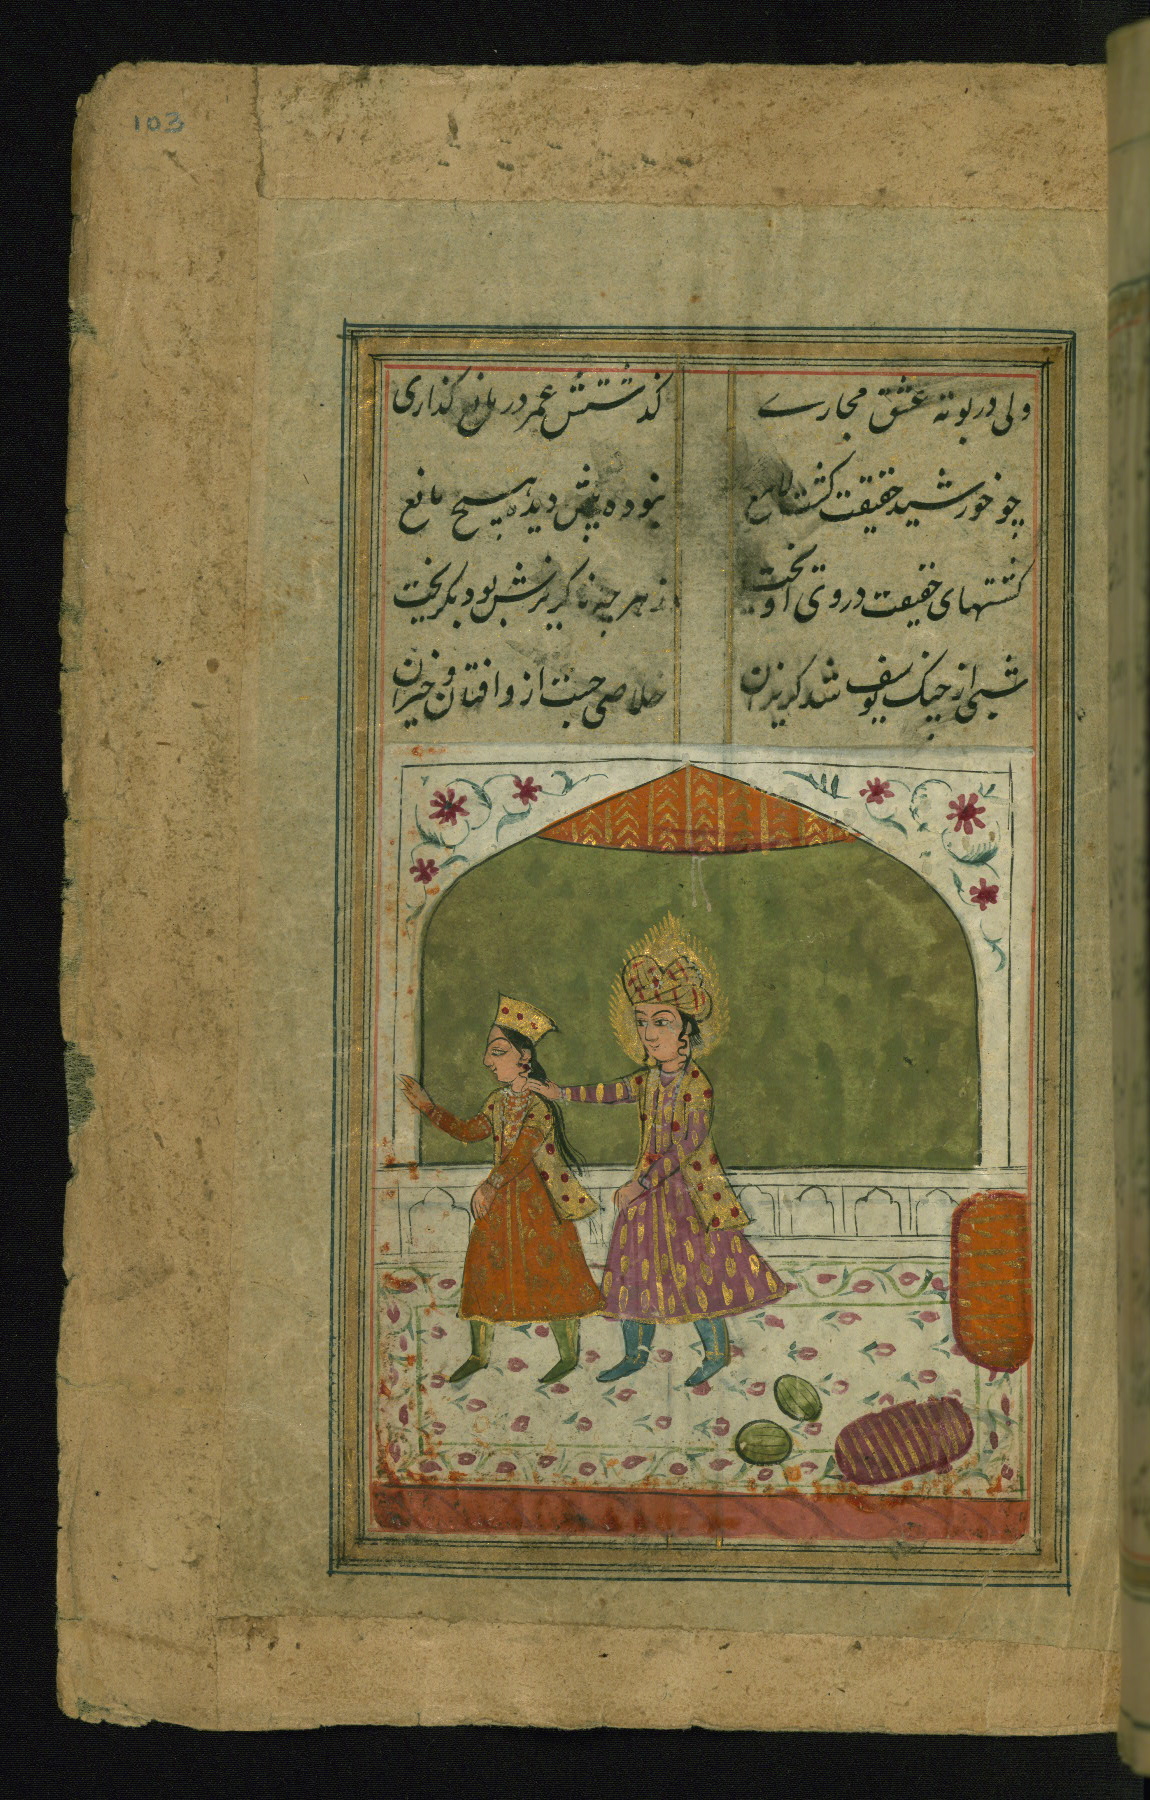 103
ولی در بوته عشق مجازے
کذشتش عمر در کذاری
چو خورشید حقیقت کشت لامع
نبوده پیش دیده هیچ مانع
حقیقت در وی آویخت
زهر چه ناکریزش بود بکریخت
شبی از چنک یوسف شد کریزان
خلاصی جست ازو افتان و خیزان